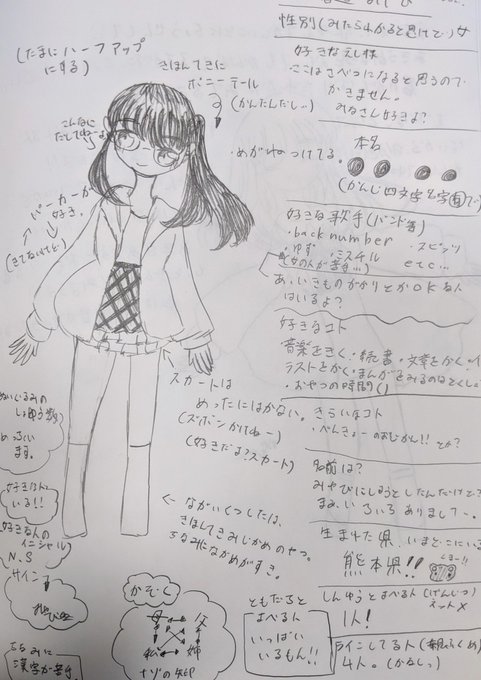 (たまにハーフアップ
にする)
きほんてきに
ポニーテール
(かんたんだし…)
こんなに
・めがねつけてる。
パーカーが
好き。
スカートは
めったにはかない。
(ズボンかけねー)
(好きだよ?スカート)
← ながいくつしたは、
きほんてきみじかめのやつ。
ちなみにながめがすき。
ぬいぐるみの
しょゆう数
います。
好きな人
いる!!
好きな人の
イニシャル
N.S
サイン
ちなみに
漢字が苦手
かぞく
母 父
私 姉
ナゾの矢印
ともだちと
よべる人
いっぱい
いるもん!!
性別(みたらわかると思けど)女
好きなえし様
ここはさべつになると思うので
かきません。
みなさん好きよ?
本名
(かんじ四文字名字有で)
好きな歌手(バンド等)
・back number ・スピッツ
・ゆず ・ミスチル etc…
(女の人が苦手…)
あ、いきものがかりとかOKな人
はいるよ?
好きなコト
音楽をきく・読書・文章をかく・イ
ラストをかく・まんがをみる
・おやつの時間()
きらいなコト
・べんきょーのおじかん!!とか?
名前は?
みやびにしようとしたんだけど?
まぁ、いろいろありましてー。
生まれた県、いまどこにいる
熊本県!! くまー!!
しんゆうとよべる人(げんじつ)
ネット✕
1人!
ラインしてる人
4人。(かなしっ)